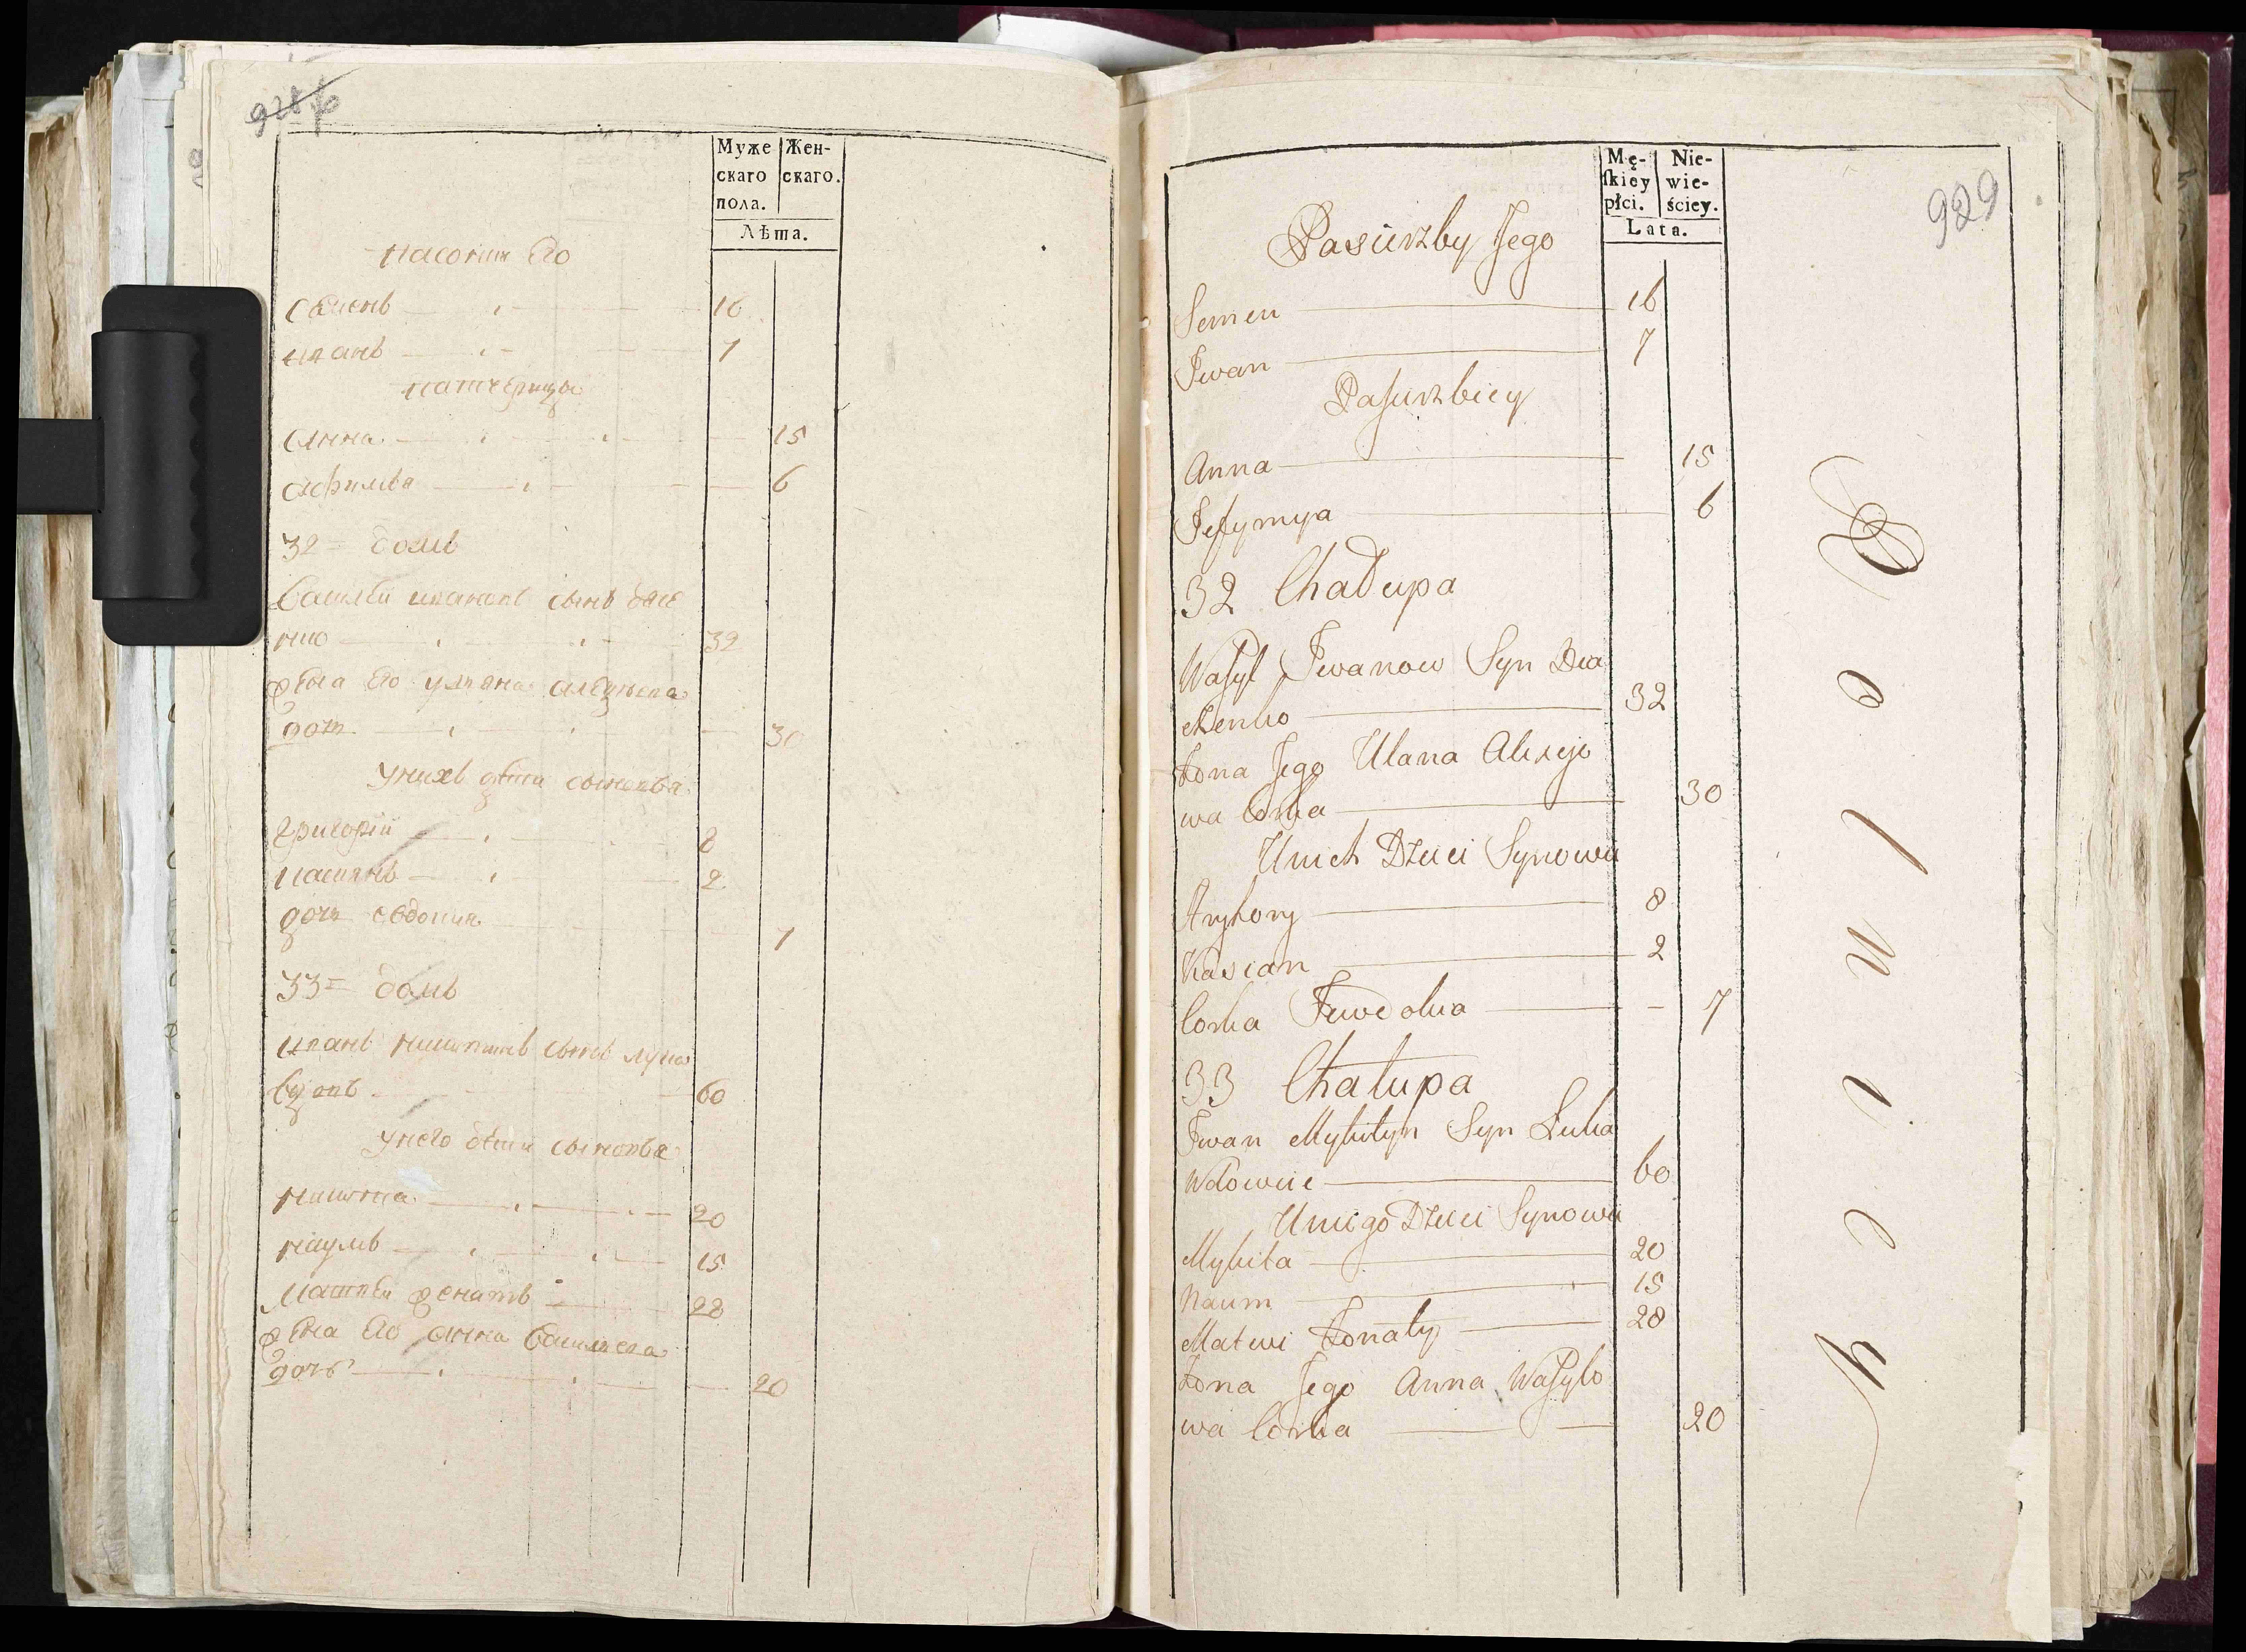 928
Муже
скаго
пола.
Жен-
скаго.
Лѣта.
пасонки Его
Семенъ 16
иванъ 7
патчерицы
Анна 15
Афимья 6
32= домъ
василей ивановъ сынъ
32
жена Его уляна
дочь 30
унихъ дѣти сыновья
григорій 8
касіянъ 2
дочь Евдокия 7
33= домъ
иванъ никитинъ сынъ лука
вдовъ 60
унего дѣти сыновья
никита 20
наумъ 15
Матвей женатъ 28
жена Его анна василева
дочь 20
929
Mę-
ſkiey
płci.
Nie-
wie-
ściey.
Lata.
Pasierzby Jego
Semen 16
Iwan 7
Paſierzbicy
Anna 15
Jefymya 6
32 Chałupa
Waſyl Iwanow Syn Dia
czenko 32
Żona Jego Ulana Alexejo
wa Corka 30
Unich Dzieci Synowie
Hryhory 8
Kasian 2
Corka Jewdokia - 7
33 Chalupa
Iwan Mykityn Syn Luka
Wdowiec 60
Uniego Dzieci Synowie
Mykita 20
Naum 15
Matwi Żonaty 28
Żona Jego Anna Waſylo
wa Corka 20